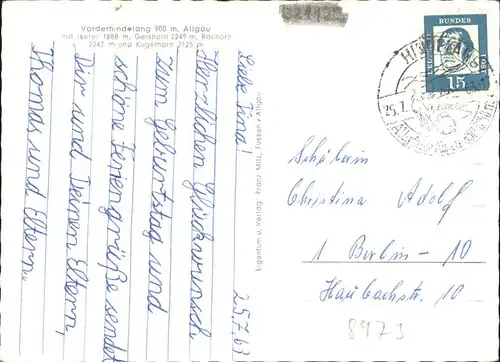 Vorderhindelang 900 m, Allgäu
mit Iseler 1888 m, Geishorn 2249 m, Rauhorn
2242 m und Kugelhorn 2125 m
25.7.63
Liebe Tina!
Herzlichen Glückwunsch
zum Geburtstag und
schöne Feriengrüße sendet
Dir und Deinen Eltern,
Thomas und Eltern.
Eigentum u. Verlag: Franz Milz, Füssen/Allgäu
DEUTSCHE BUNDESPOST
15
25.7.
Schülerin
Christina Adolf
1 Berlin - 10
Haubachstr. 10
8973